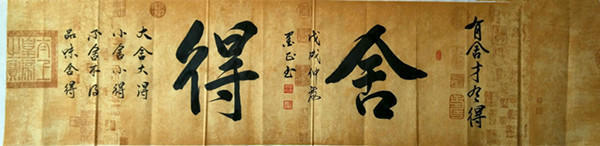 有舍才有得
舍
得
戊戌仲夏
墨正书
大舍大得
小舍小得
不舍不得
品味舍得